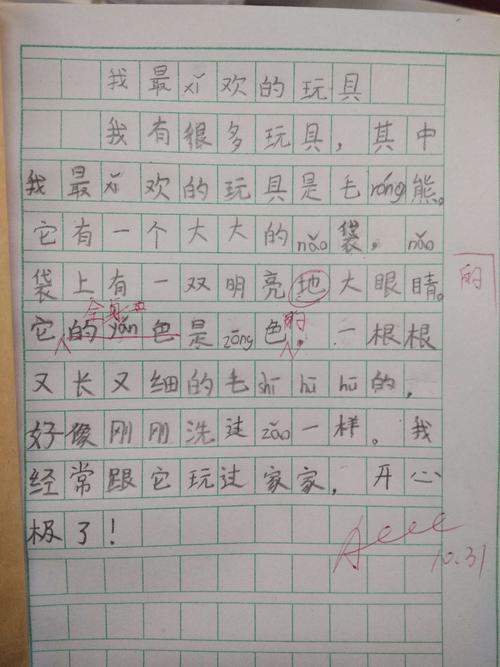 我最xǐ欢的玩具
我有很多玩具，其中
我最xǐ欢的玩具是毛róng熊。
它有一个大大的nǎo袋，nǎo
袋上有一双明亮地大眼睛。
的
全身
它的yán色是zōng色。一根根
的
又长又细的毛shī hū hū的，
好像刚刚洗过zǎo一样。我
经常跟它玩过家家，开心
极了！
10.31